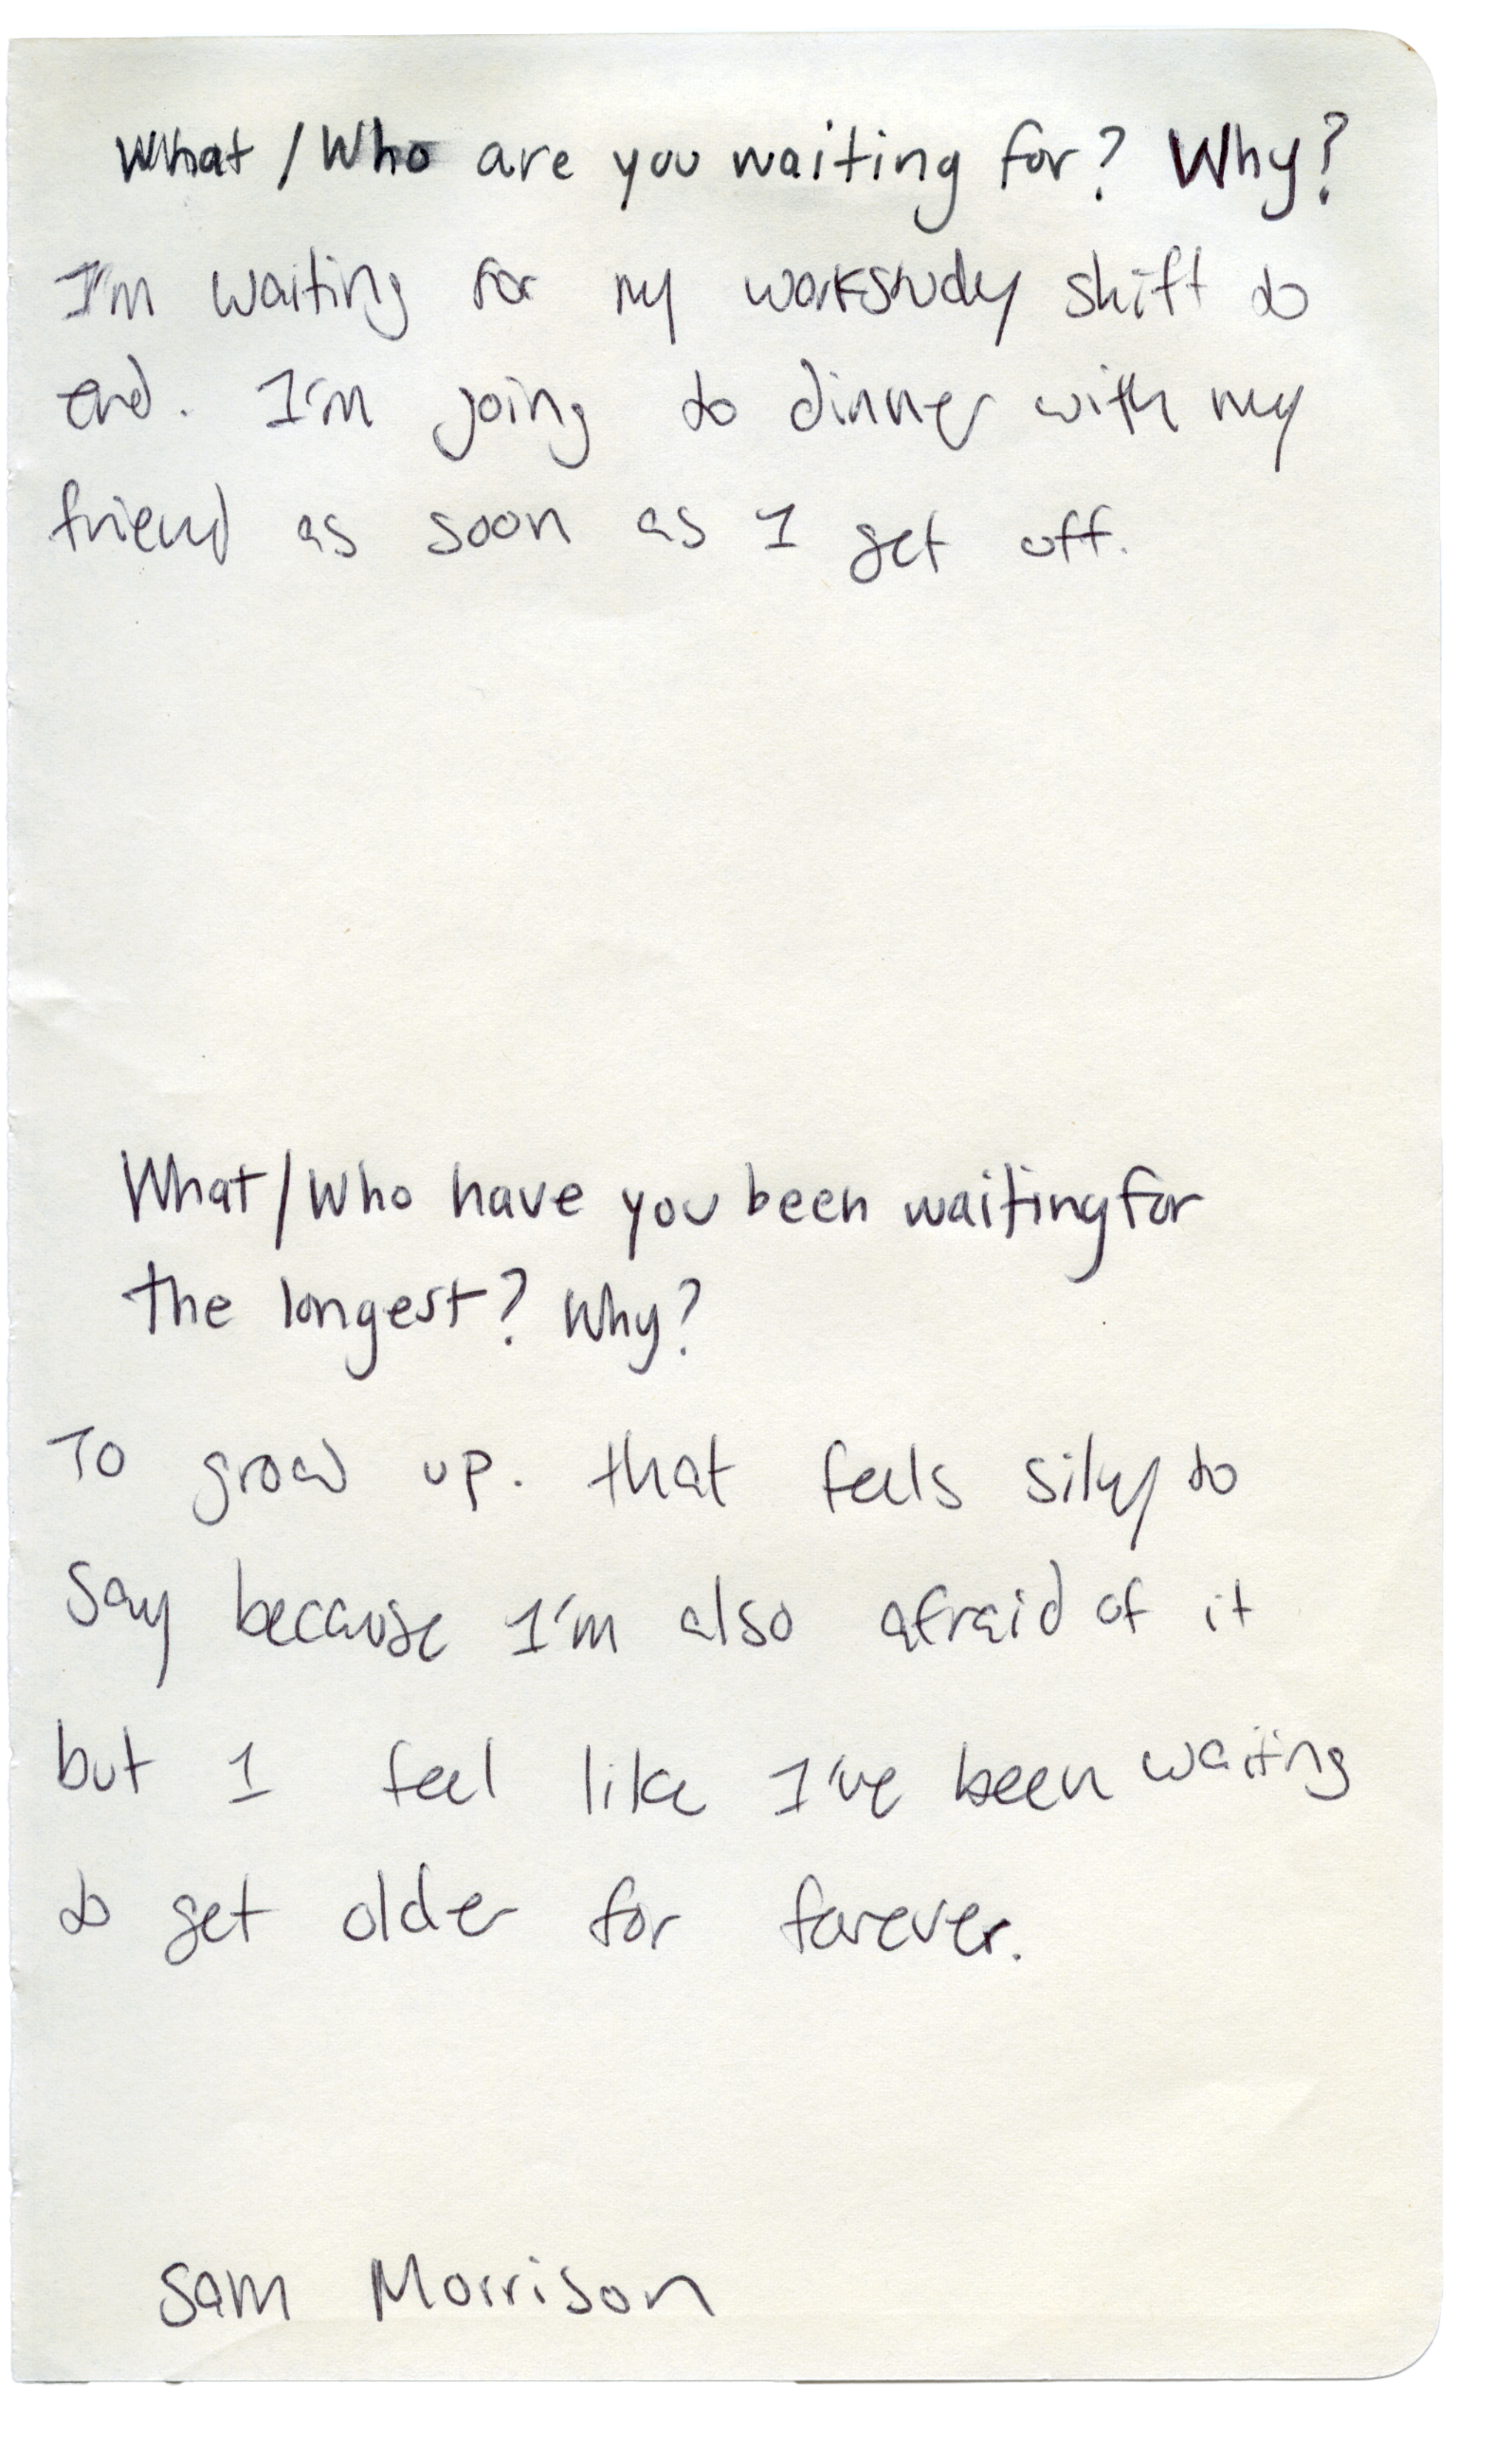 What / Who are you waiting for? Why?
I'm waiting for my workstudy shift to
end. I'm going to dinner with my
friend as soon as I get off.
What/Who have you been waiting for
the longest? Why?
To grow up. that feels silly to
say because I'm also afraid of it
but I feel like I've been waiting
to get older for forever.
Sam Morrison